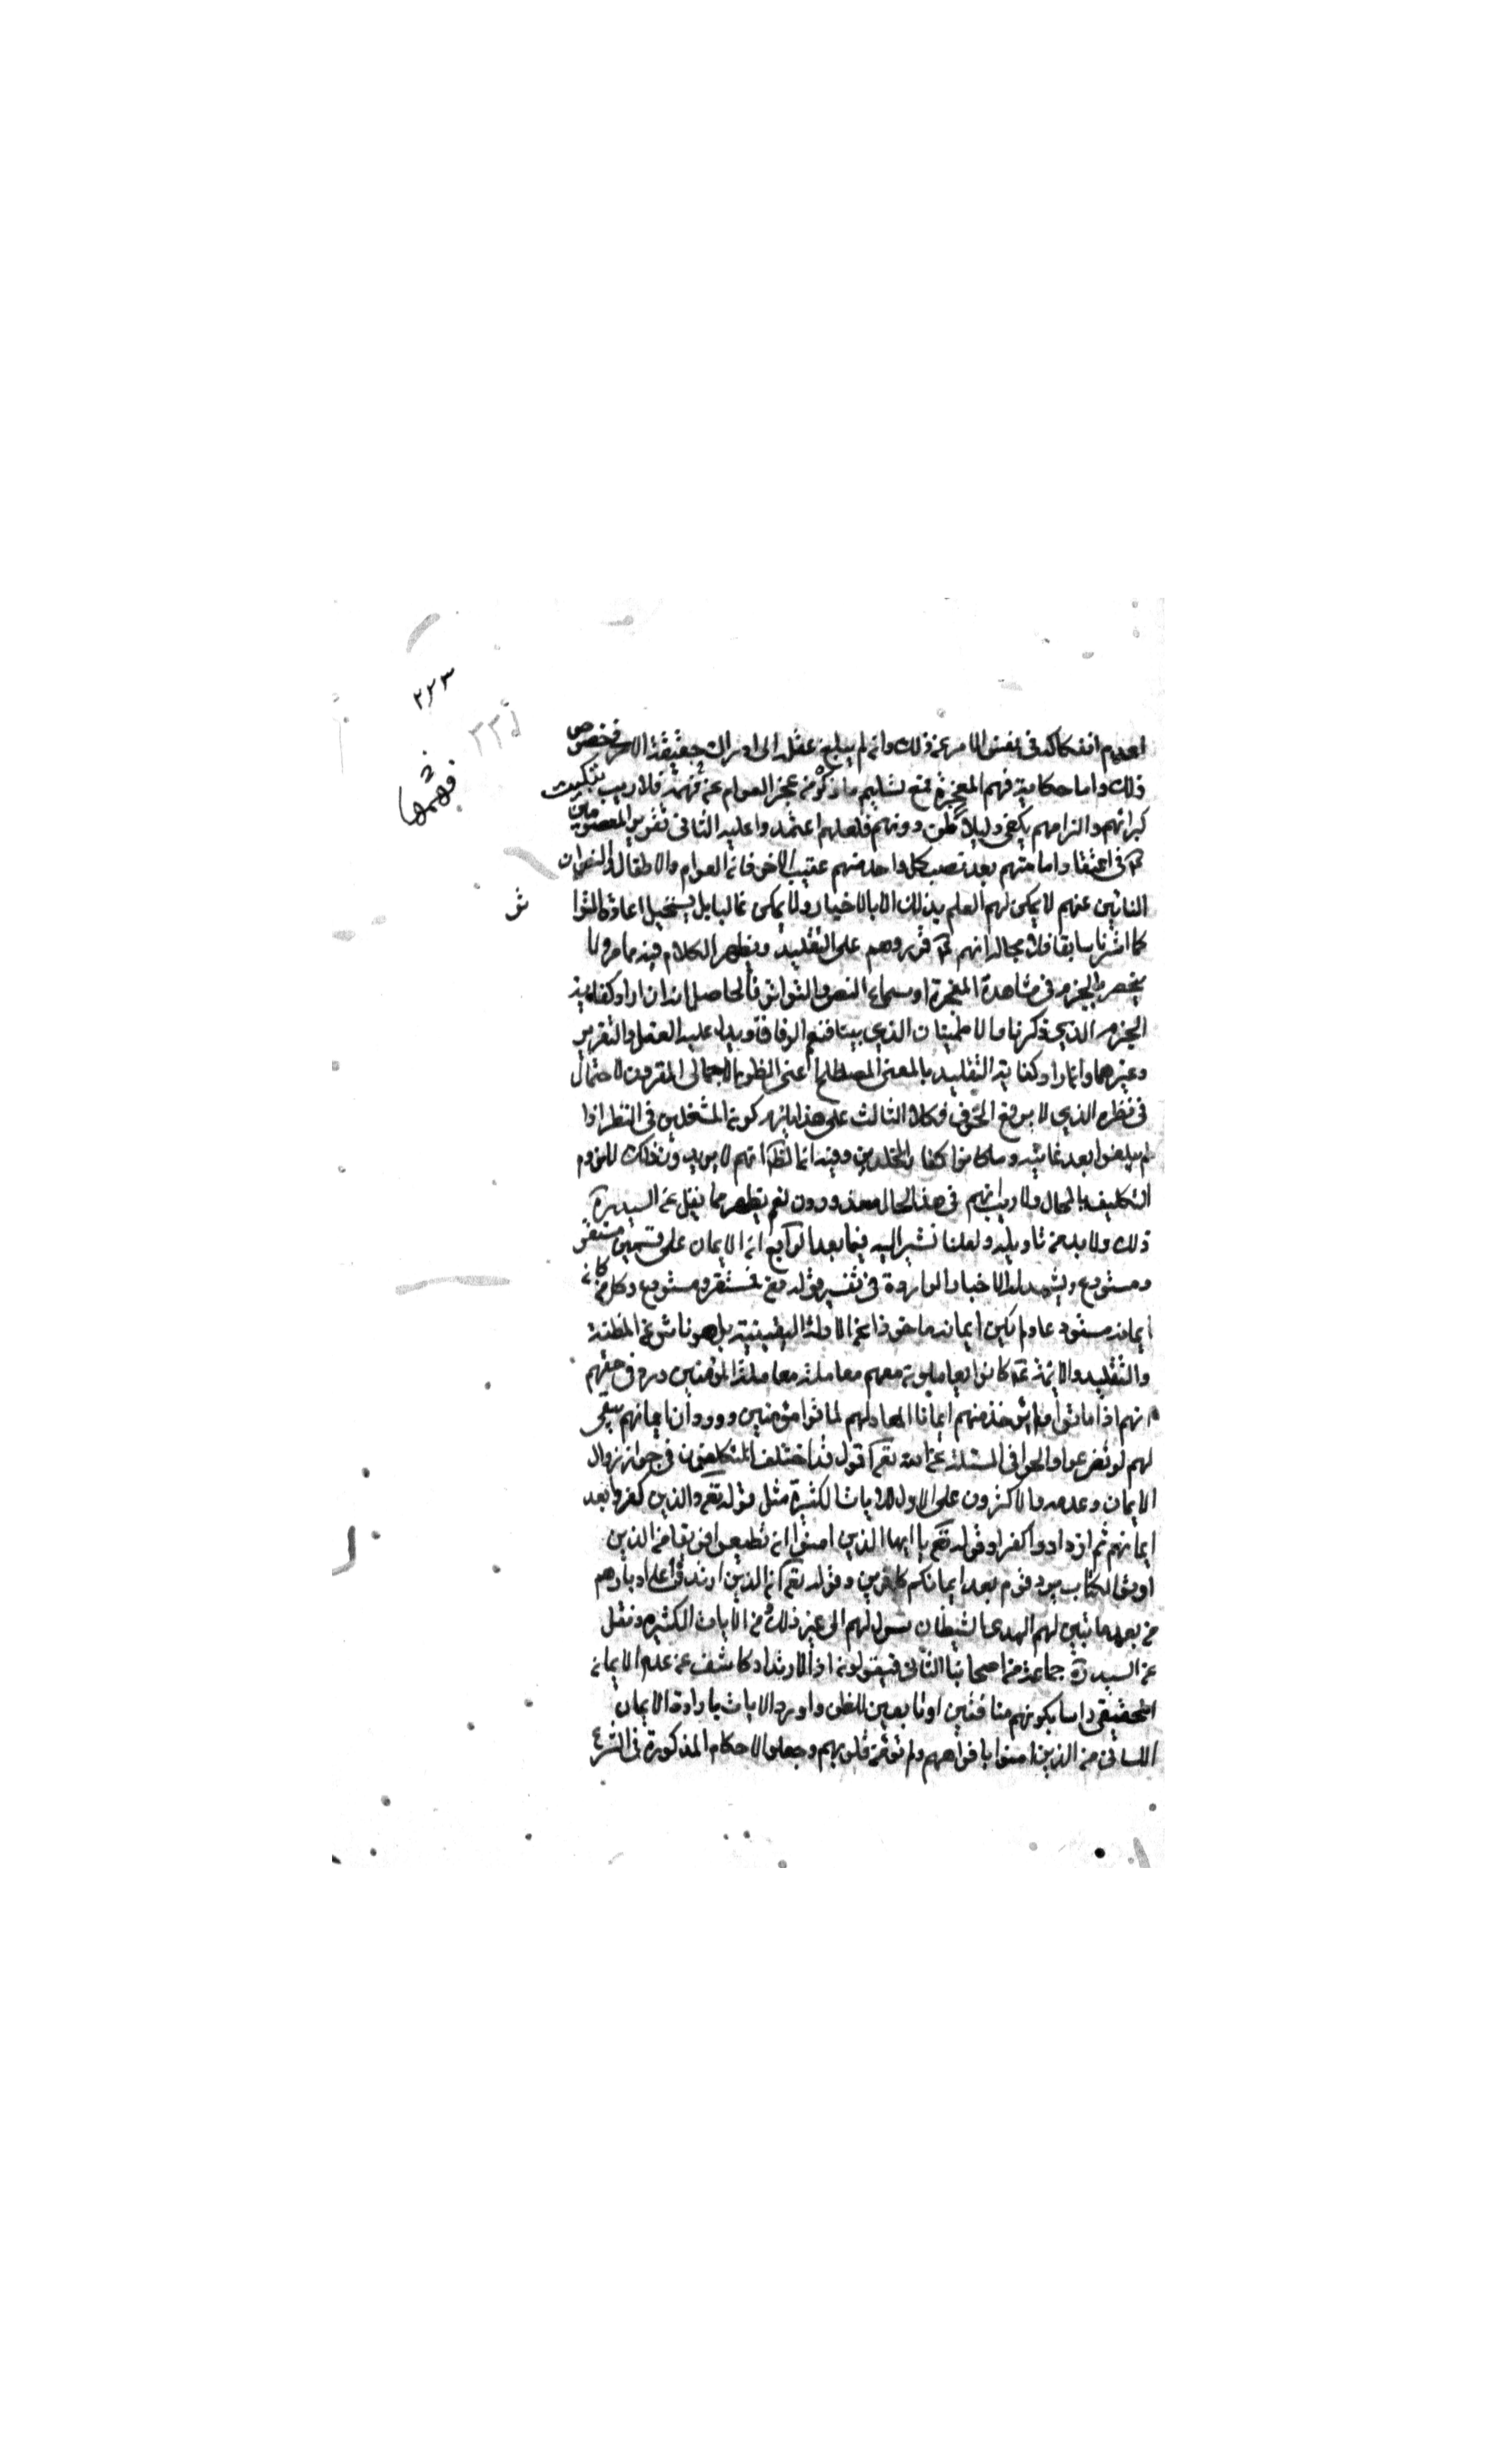 لعدم انفكاكه في نفس الامر عن ذلك وان لم يبلغ عقله الى ادراك حقيقة الامر فخصوص
ذلك واما حكاية فهم المعجزة فمع تسليم ما ذكره من عجز العوام عن فهمه فلا ريب
كبرائهم والتزامهم يكفي دليلا لمن دونهم فلعلهم اعتمدوا عليه الثاني تقرير المعصومين
في اعتقاد امامتهم بعد نصب كل واحد منهم عقيب الاخر فان العوام والاطفال والنسوان
النائين عنهم لا يمكن لهم العلم بذلك الا بالاخبار ولا يمكن غالبا بل يستحيل عادة التوا
كما اشرنا سابقا فلا محالة انهم قرروهم على التقليد ويظهر الكلام فيه مما مر ولا
ينحصر الجزم في مشاهدة المعجزة او سماع النص والتواتر فالحاصل انه ان اراد كفاية
الجزم الذي ذكرنا والاطمينان الذي بينا فنعم الوفاق ويدل عليه العقل والتقرير
وغيرهما وان اراد كفاية التقليد بالمعنى المصطلح اعني الظن الاجمالي المقرون لاحتمال
في نظره الذي لا يرفع الخوف فكلا الثالث على هذا يلزم كون المشتغلين في النظر اذا
لم يبلغوا بعد غايته وماتوا كفارا مخلدين وفيه انا لا يريدون ذلك للزوم
التكليف بالمحال ولا ريب انهم في هذا الحال معذورون نعم يظهر مما نقل عن السيد ره
ذلك ولا بد من تاويله ولعلنا نشير اليه فيما بعد الرابع ان الايمان على قسمين مستقر
ومستودع ويشهد له الاخبار الواردة في تفسير قوله تع فمستقر ومستودع وكل من كان
ايمانه مستودعا ولم يكن ايمانه ماخوذا عن الادلة اليقينية بل هو ناش عن المظنة
والتقليد والائمة ع كانوا يعاملون معهم معاملة المؤمنين وورد في حقهم
انهم اذا ماتوا ولم يؤخذ منهم ايمانا المعاد لهم لماتوا مؤمنين وورد ان ايمانهم يبقى
لهم لو تضرعوا والحوا في المسئلة عن الله تع اقول قد اختلف المتكلمون في جواز زوال
الايمان وعدمه والاكثرون على الاول للايات الكثيرة مثل قوله تع والذين كفروا بعد
ايمانهم ثم ازدادوا كفرا وقوله تع يا ايها الذين امنوا ان تطيعوا فريقا من الذين
اوتوا الكتاب يردوكم بعد ايمانكم كافرين وقوله تع ان الذين ارتدوا على ادبارهم
من بعد ما تبين لهم الهدى الشيطان سول لهم الى غير ذلك من الايات الكثيرة ونقل
عن السيد ره جماعة من اصحابنا الثاني فيقولون اذ الارتداد كاشف عن عدم الايمان
الحقيقي اما بكونهم منافقين او تابعين للظن واورد الايات بارادة الايمان
اللساني من الذين امنوا بافواههم ولم تؤمن قلوبهم وجعلوا الاحكام المذكورة في الشرع
فهمها
ش
٢٢٣